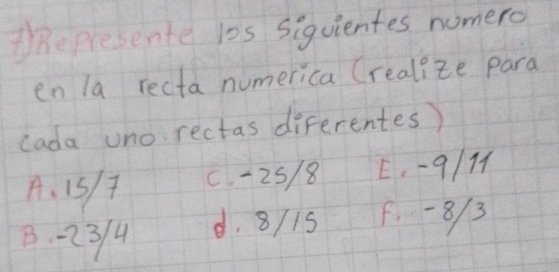 7) Represente los siguientes numero
en la recta numerica (realize para
cada uno. rectas diferentes)
A. 15/7 C. -25/8 E. -9/11
B. -23/4 d. 8/15 F. -8/3